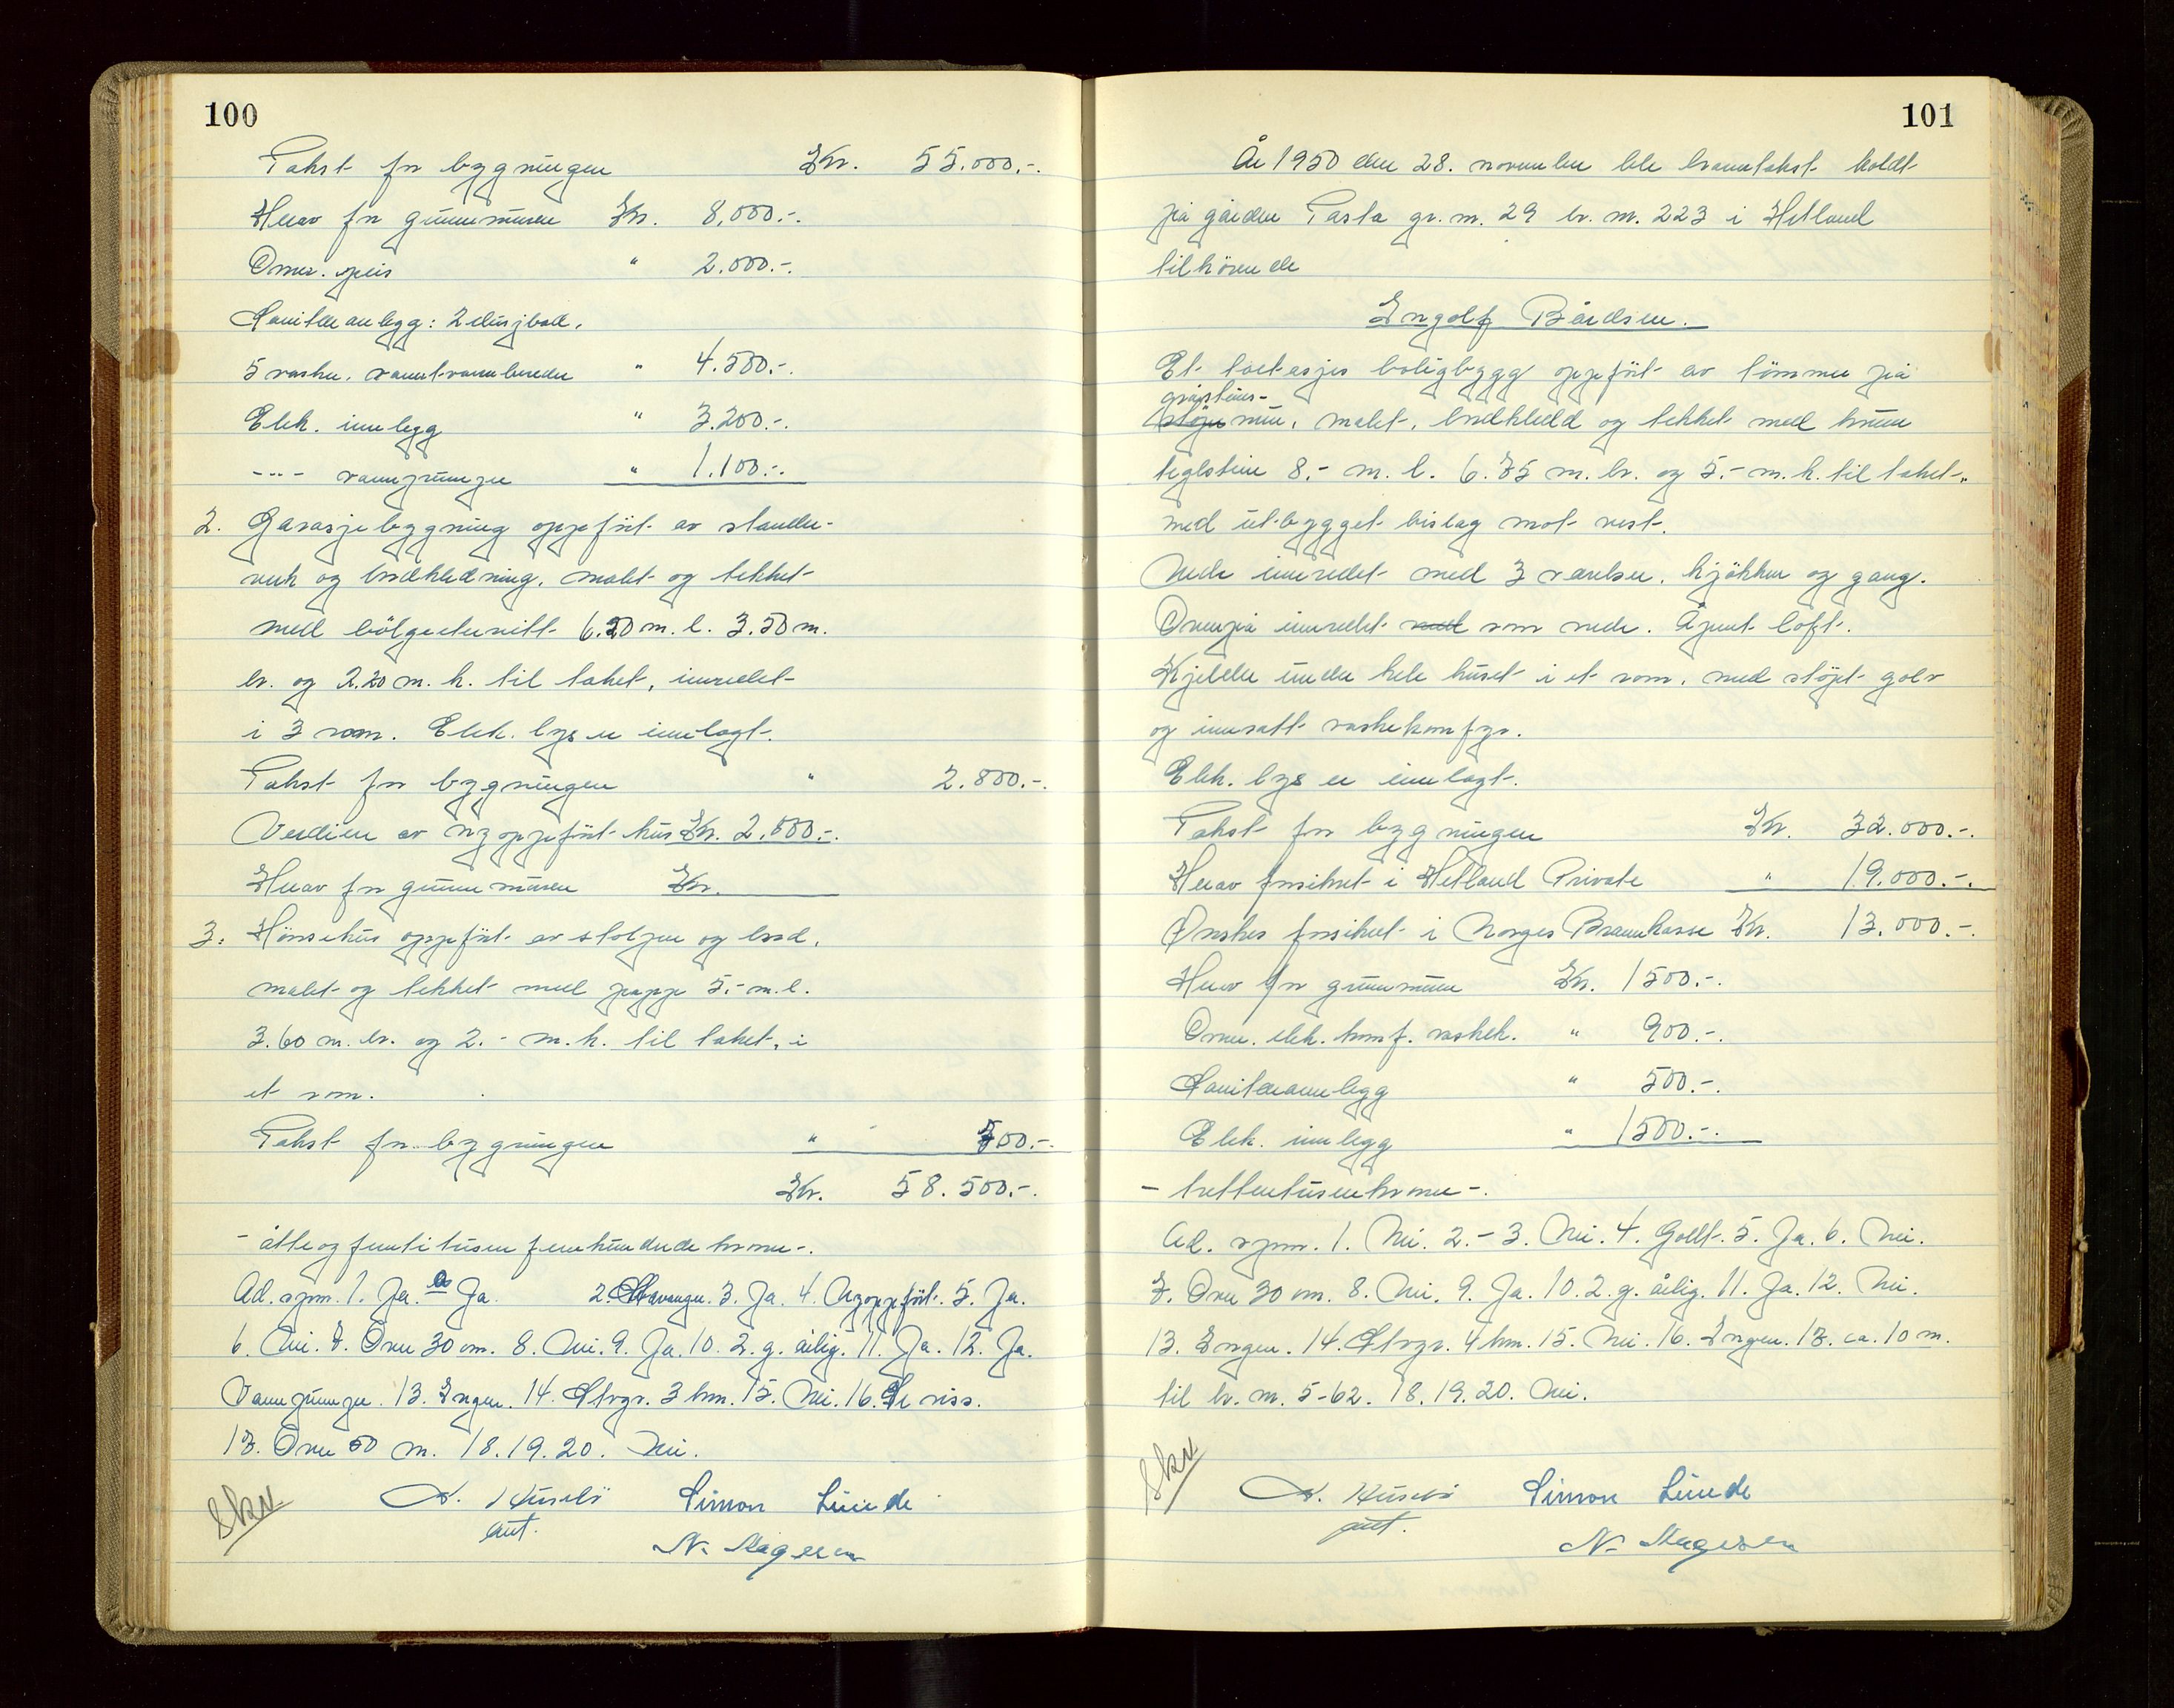 100
Takst for bygningen Kr. 55.000.-.
Herav for grunnmuren Kr. 8,000.-.
Ovner. peis " 2.000.-.
Sanitæranlegg: 2 dusjbad,
5 vasker, varmtvannbereder " 4.500.-.
Elek. innlegg " 3.200.-.
-"- vannpumpe " 1.100.-.
2. Garasjebygning oppført av stender-
verk og bordkledning, malet og tekket
med bölgeeternitt 6.20 m. l. 3.50 m.
br. og 2.20 m. h. til taket, innredet
i 3 rom. Elek. lys er innlagt.
Takst for bygningen " 2.800.-.
Verdien av nyoppført hus Kr. 2.000.-.
Herav for grunnmuren Kr.
3. Hönsehus oppført av stolper og bord,
malet og tekket med papp 5.- m. l.
3.60 m. br. og 2.- m. h. til taket, i
et rom.
Takst for bygningen " 700.-.
Kr. 58.500.-.
- åtteogfemtitusenfemhundrede kroner -.
Ad. spm. 1. Ja. Ja. 2. Stavanger. 3. Ja. 4. Nyoppført. 5. Ja.
6. Nei. 7. Over 30 cm. 8. Nei. 9. Ja. 10. 2. g. årlig. 11. Ja. 12. Ja.
Vannpumpe. 13. Ingen. 14. Stvgr. 3 km. 15. Nei. 16. Se riss.
17. Over 50 m. 18. 19. 20. Nei.
Skr
Husebö Simon Lunde
N.
101
År 1950 den 28. november ble branntakst holdt
på gården Tasta gr. nr. 29 br. nr. 223 i Hetland
tilhörende
Ingolf Bårdsen.
Et toetasjes boligbygg oppført av tömmer på
gråsteins-
støpe mur, malet, bordkledd og tekket med krum
teglstein 8.- m. l. 6.75 m. br. og 5.- m. h. til taket,
med utbygget bislag mot vest.
Nede innredet med 3 værelser, kjökken og gang.
Ovenpå innredet med som nede. Åpent loft.
Kjeller under hele huset i et rom, med stöpt golv
og innsatt vaskekomfyr.
Elek. lys er innlagt.
Takst for bygningen Kr. 32.000.-.
Herav forsikret i Hetland Private " 19.000.-.
Ønskes forsikret i Norges Brannkasse Kr. 13.000.-.
Herav for grunnmur Kr. 1500.-.
Ovner. elek. komf. vaskek. " 900.-.
Sanitæranlegg " 500.-.
Elek. innlegg " 1500.-.
- trettentusenkroner -.
Ad. spm. 1. Nei. 2. - 3. Nei. 4. Godt. 5. Ja. 6. Nei.
7. Over 30 cm. 8. Nei. 9. Ja. 10. 2. g. årlig. 11. Ja. 12. Nei.
13. Ingen. 14. Stvgr. 4 km. 15. Nei. 16. Ingen. 17. ca. 10 m.
til br. nr. 5-62. 18. 19. 20. Nei.
Skr
Husebö Simon Lunde
N.